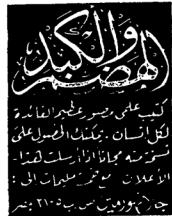 الهضم والكبد
كتيب علمى مصور عظيم الفائدة
لكل انسان . يمكنك الحصول على
نسخة منه مجاناً اذا أرسلت هذا
الاعلان مع خمسة مليمات الى :
ص . ب ٢١٠٥ مصر